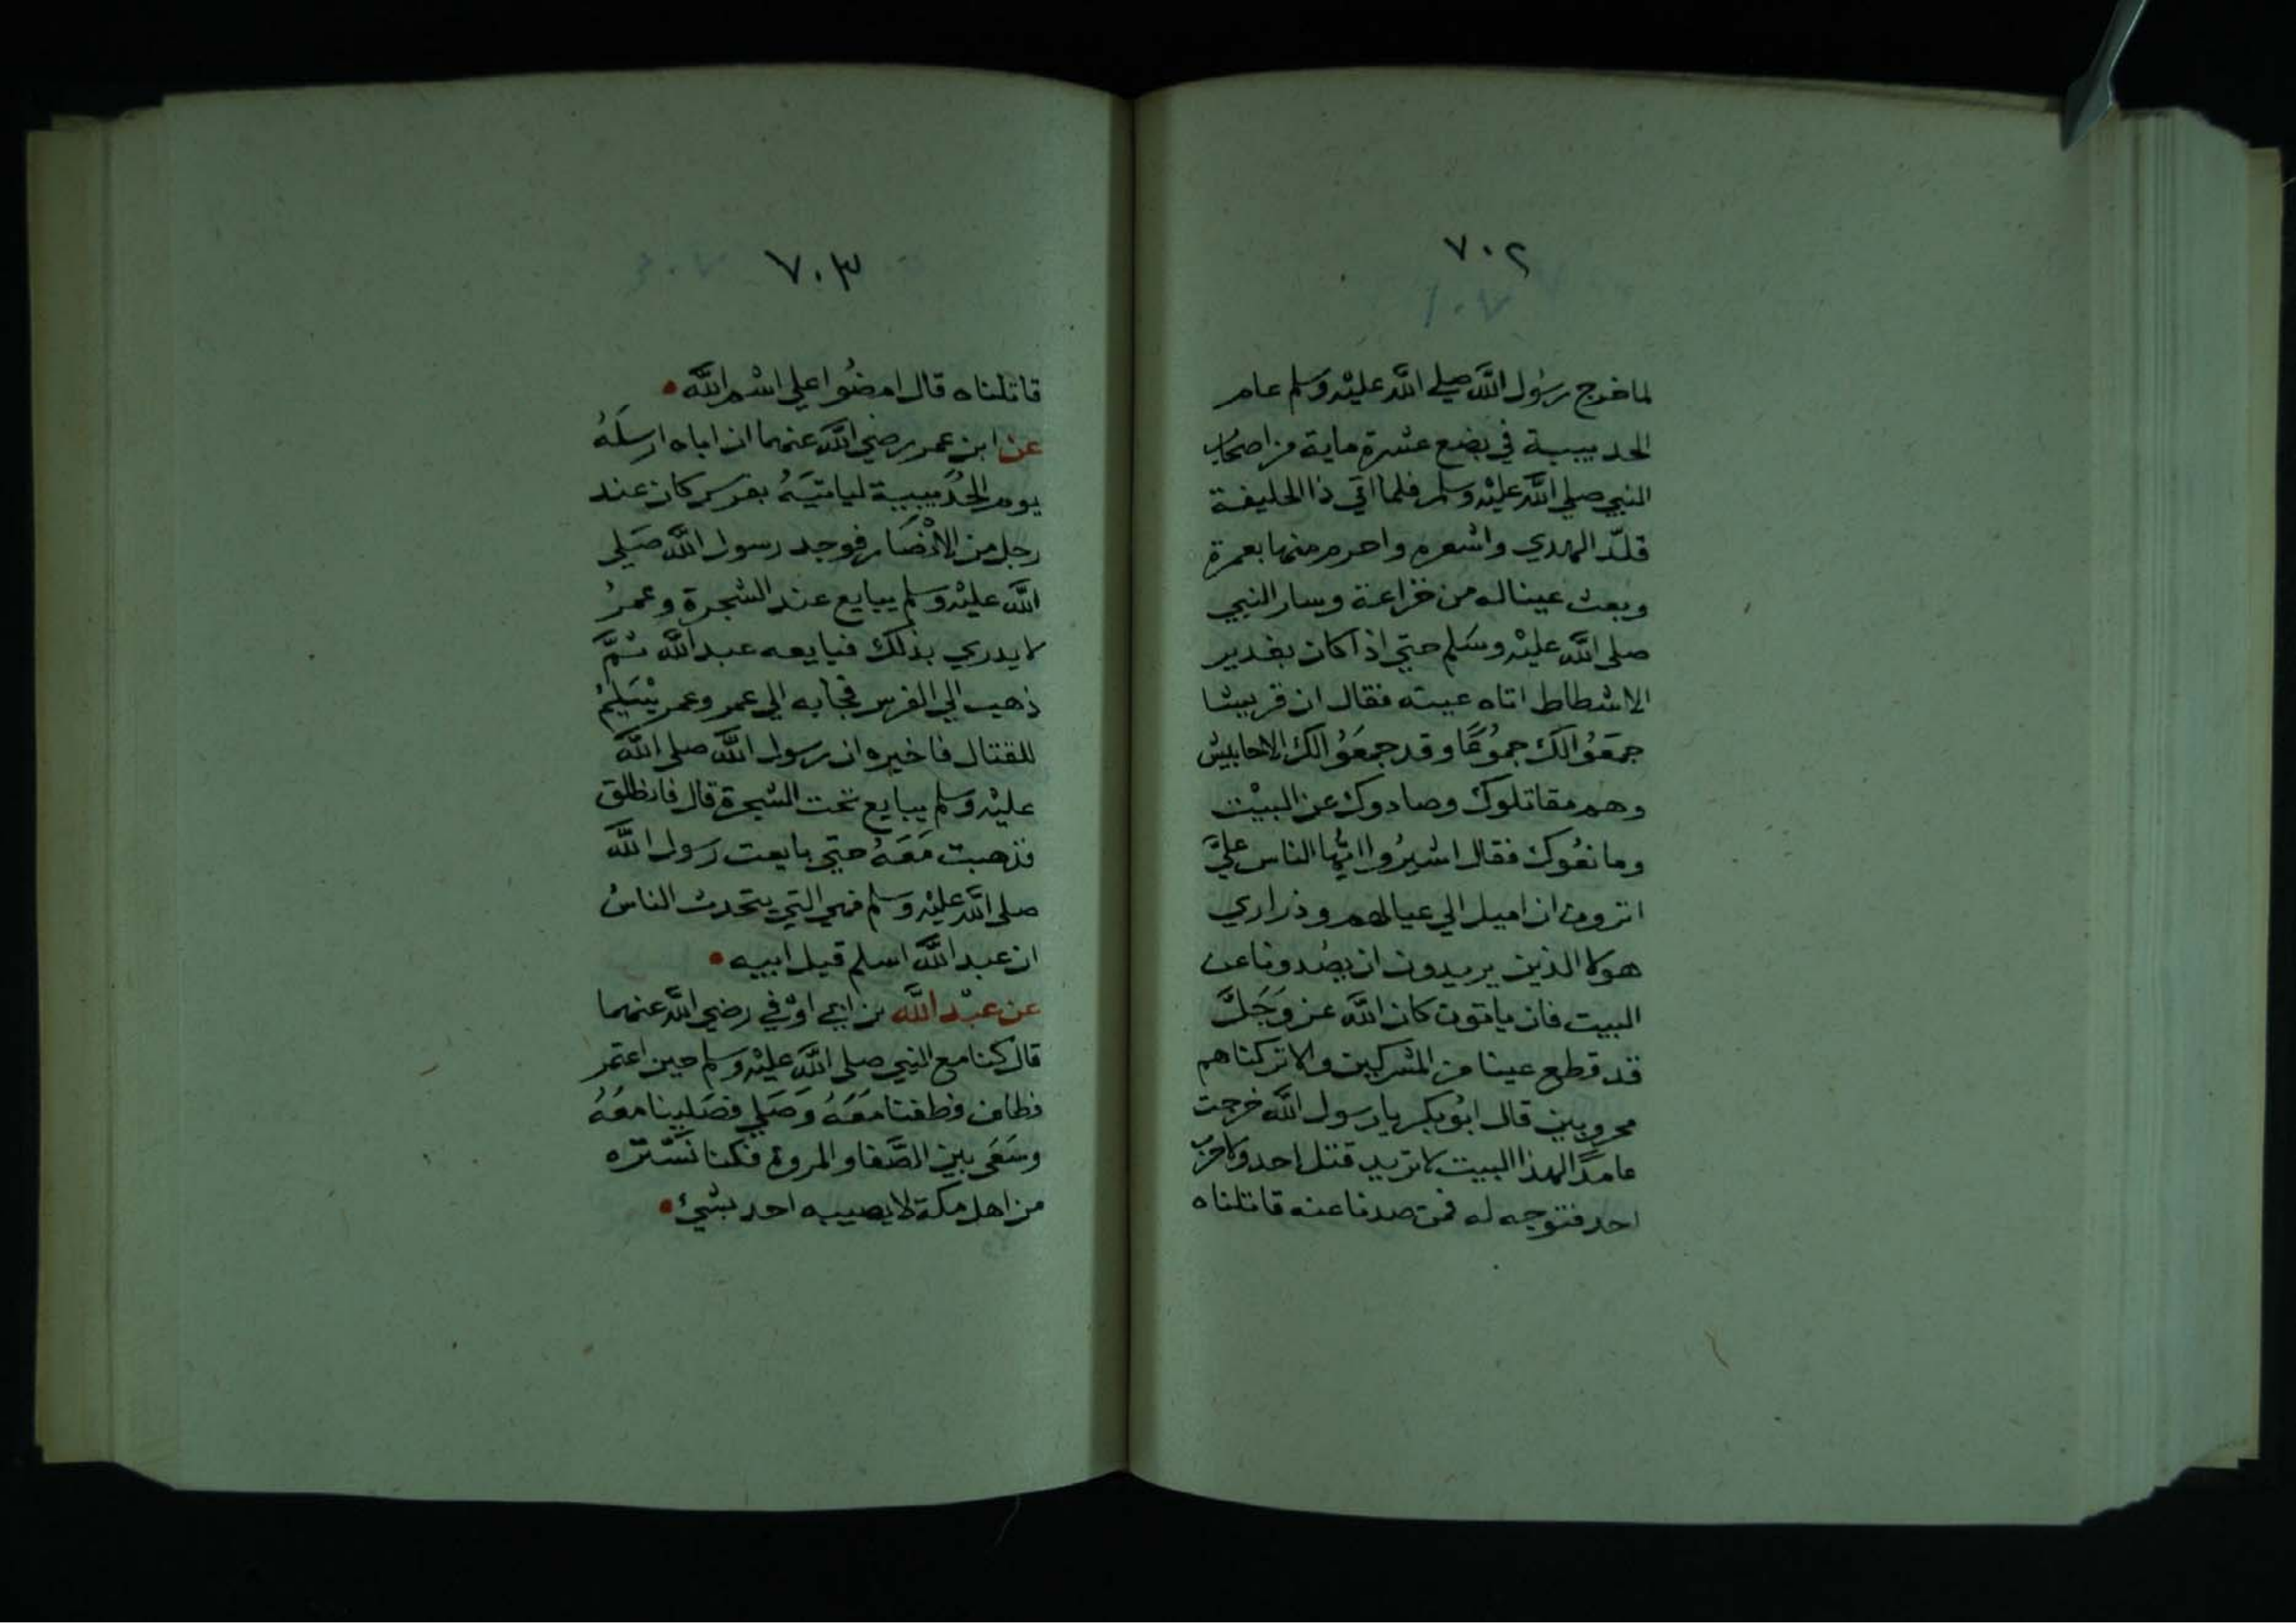 ٧٠٢
لما خرج رسُول اللَّه صلي اللَّه عليْه وسلم عام
الحديبية في بضع عشرة ماية من اصحاب
النبي صلي اللَّه عليْه وسلم فلما اتي ذا الحليفة
قلّد الهدي واشعره واحرم منها بعمرة
وبعث عينا له من خزاعة وسار النبي
صلى اللَّه عليْه وسَلم حتي اذا كان بغدير
الاشطاط اتاه عينه فقال ان قريشا
جمَعُوا لكَ جموُعًا وقد جمعَوُا لك الاحابيش
وهم مقاتلوك وصادوك عن البيْت
ومانعُوك فقال اشيرُوا ايّها الناس عليَّ
اترون ان اميل الي عيالهم وذراري
هولا الذين يريدون ان يصُدونا عن
البيت فان ياتون كان اللَّه عز وَجَلَّ
قد قطع عينا من المشركين والا تركناهم
محروبين قال ابُو بكر يا رسول اللَّه خرجت
عامدًا لهذا البيت لا تريد قتل احد ولا حرب
احد فتوجه له فمن صدنا عنه قاتلناه
٧٠٣
قاتلناه قال امضُوا علي اسْم اللَّه •
عن ابن عمر رضي اللَّه عنهما ان اباه ارسلَهُ
يوم الحُدَيبية لياتيَهُ بفرس كان عند
رجل من الانْصَار فوجد رسول اللَّه صَلي
اللَّه عليْه وسلم يبايع عند الشجرة وعمرُ
لا يدري بذلك فبايعه عبد اللَّه ثمَّ
ذهب الي الفرس فجا به الي عمر وعمر يَسْتَلِيمُ
للقتال فاخبره ان رسول اللَّه صلي اللَّه
عليْه وسلم يبايع تحت الشجرة قال فانطلق
فذهبت مَعَهُ حتي بايعت رسول اللَّه
صلى اللَّه عليْه وسلم فهي التي يتحدث الناسُ
ان عبد اللَّه اسلم قبل ابيه •
عن عبْد اللَّه بن ابي اوْفي رضي اللَّه عنهما
قال كنا مع النبي صلى اللَّه عليْه وسلم حين اعتمر
فطاف فطفنا مَعَهُ وَصَلي فصَلينا معَهُ
وسَعَى بين الصَّفا والمروة فكنا نَسْتره
من اهل مكة لا يصيبه احد بشيئ •